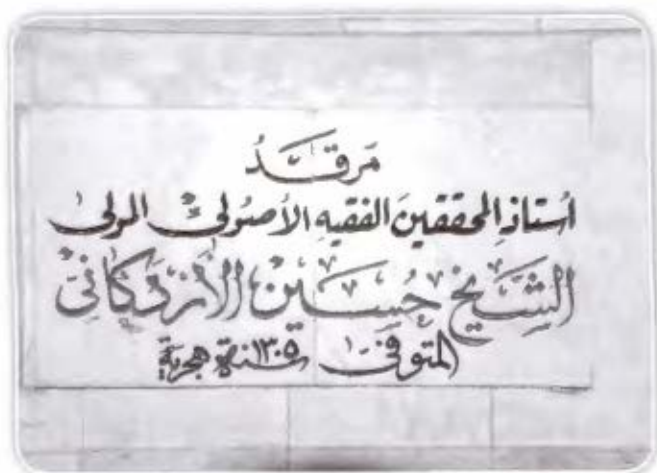 مَرقَدُ
أستاذِ المحققينَ الفقيهِ الأصُولي المولى
الشيخ حُسَين الأردكاني
المتوفى سنة ١٣٠٥ هجرية